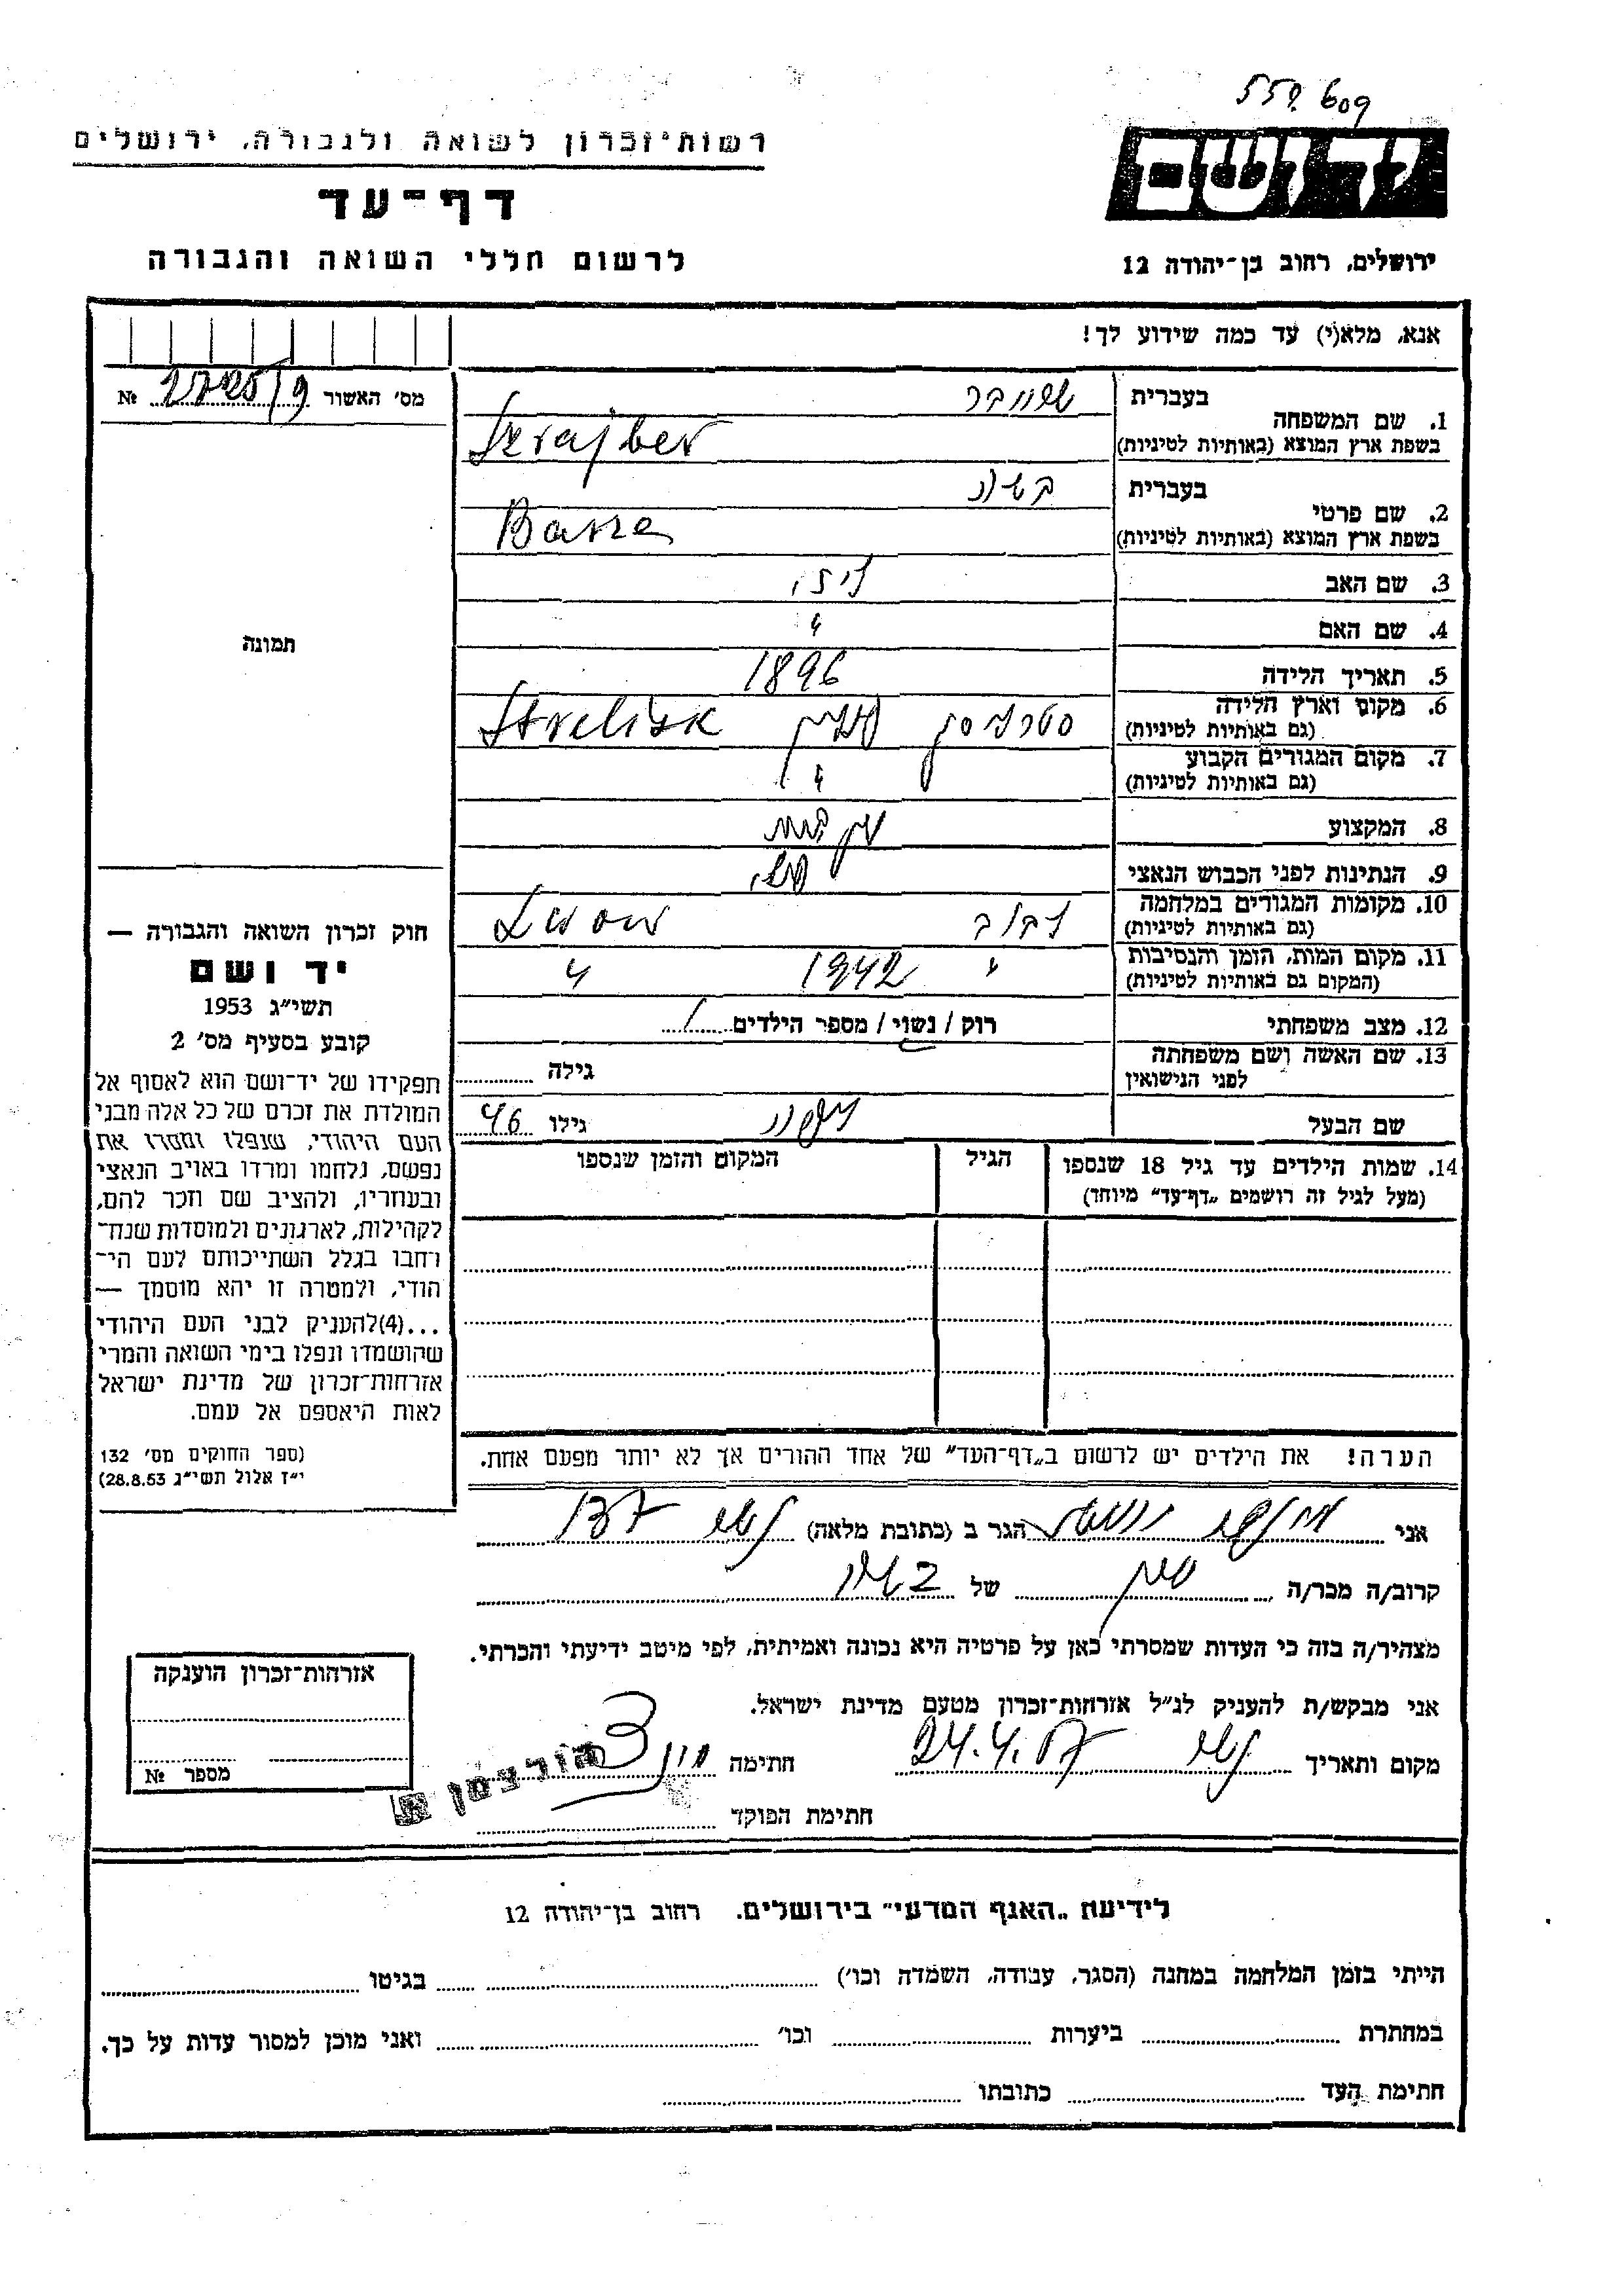 557.609
רשות־זכרון לשואה ולגבורה, ירושלים
יד ושם
דף־עד
לרשום חללי השואה והגבורה
ירושלים, רחוב בן־יהודה 12
אנא, מלא(י) עד כמה שידוע לך!
מס' האשור №
1. שם המשפחה בעברית שרייבר
בשפת ארץ המוצא (באותיות לטיניות) Szrajber
2. שם פרטי בעברית
בשפת ארץ המוצא (באותיות לטיניות)
3. שם האב
4. שם האם
5. תאריך הלידה 1896
6. מקום וארץ הלידה
(גם באותיות לטיניות) Strelisk
7. מקום המגורים הקבוע
(גם באותיות לטיניות) "
8. המקצוע
9. הנתינות לפני הכבוש הנאצי
10. מקומות המגורים במלחמה לבוב
(גם באותיות לטיניות) Lwow
11. מקום המות, הזמן והנסיבות " 1942 "
(המקום גם באותיות לטיניות)
12. מצב משפחתי רוק / נשוי / מספר הילדים 1
13. שם האשה ושם משפחתה
לפני הנישואין גילה
שם הבעל גילו 46
14. שמות הילדים עד גיל 18 שנספו הגיל המקום והזמן שנספו
(מעל לגיל זה רושמים „דף־עד" מיוחד)
הערה! את הילדים יש לרשום ב„דף־העד" של אחד ההורים אך לא יותר מפעם אחת.
תמונה
חוק זכרון השואה והגבורה —
יד ושם
תשי"ג 1953
קובע בסעיף מס' 2
תפקידו של יד־ושם הוא לאסוף אל
המולדת את זכרם של כל אלה מבני
העם היהודי, שנפלו ומסרו את
נפשם, נלחמו ומרדו באויב הנאצי
ובעוזריו, ולהציב שם וזכר להם,
לקהילות, לארגונים ולמוסדות שנח־
רחבו בגלל השתייכותם לעם הי־
הודי, ולמטרה זו יהא מוסמך —
...(4)להעניק לבני העם היהודי
שהושמדו ונפלו בימי השואה והמרי
אזרחות־זכרון של מדינת ישראל
לאות היאספם אל עמם.
(ספר החוקים מס' 132
י"ז אלול תשי"ג 28.8.53)
אני הגר ב (כתובת מלאה)
קרוב/ה מכר/ה של
מצהיר/ה בזה כי העדות שמסרתי כאן על פרטיה היא נכונה ואמיתית, לפי מיטב ידיעתי והכרתי.
אני מבקש/ת להעניק לנ"ל אזרחות־זכרון מטעם מדינת ישראל.
מקום ותאריך 24.4.57 חתימה
חתימת הפוקד
הורצמן
אזרחות־זכרון הוענקה
מספר №
לידיעת „האגף המדעי" בירושלים, רחוב בן־יהודה 12
הייתי בזמן המלחמה במחנה (הסגר, עבודה, השמדה וכו') בגיטו
במחתרת ביערות וכו' ואני מוכן למסור עדות על כך.
חתימת העד כתובתו